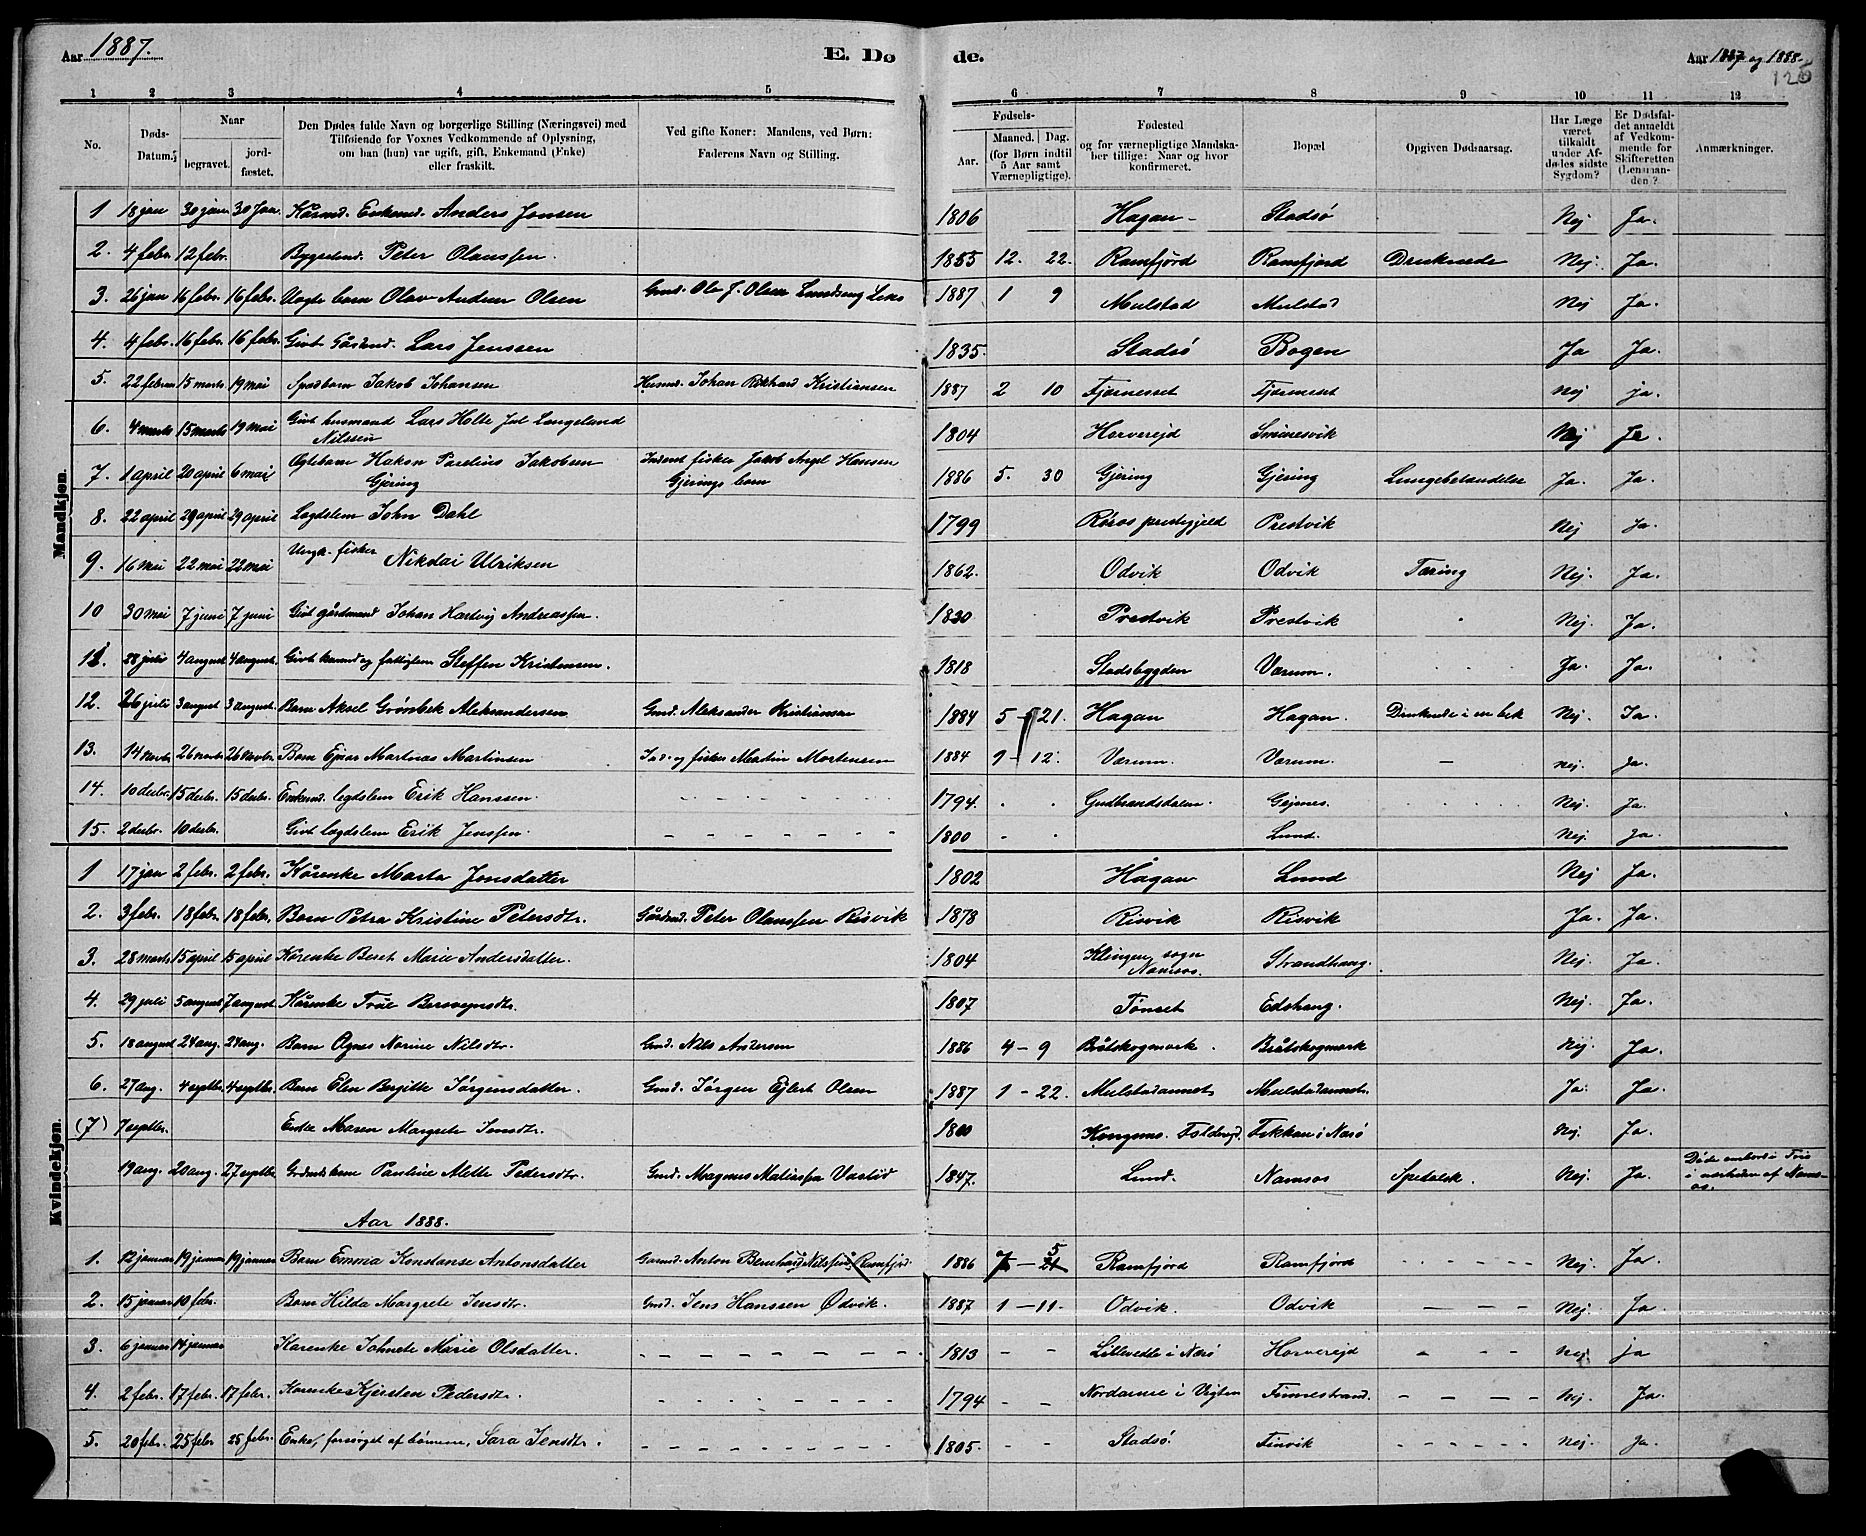 Aar 1887. E. Dø de. Aar 1887 og 1888.
125
1 2 3 4 5 6 7 8 9 10 11 12
No. Døds-Datum. Naar begravet. jordfæstet. Den Dødes fulde Navn og borgerlige Stilling (Næringsvei) med Tilføielse for Voxnes Vedkommende af Oplysning, om han (hun) var ugift, gift, Enkemand (Enke) eller fraskilt. Ved gifte Koner: Mandens, ved Børn: Faderens Navn og Stilling. Fødsels- Aar. Maaned. Dag. (for Børn indtil 5 Aar samt Værnepligtige). Fødested og for værnepligtige Mandskaber tillige: Naar og hvor konfirmeret. Bopæl Opgiven Dødsaarsag. Har Læge været tilkaldt under Afdødes sidste Sygdom? Er Dødsfaldet anmeldt af Vedkommende for Skifteretten (Lensmanden)? Anmærkninger.
Mandkjøn.
1 18 jan 30 jan 30 Jan. Kårmd. Enkemd. Anders Jonsen 1806 Hagan Stadsø Nej Ja.
2. 4 febr. 12 febr. Bygselmd. Peter Olaussen. 1855 12. 22. Ramfjord Ramfjord Druknede Nej. Ja.
3. 26 jan 16 febr. 16 febr. Ægte barn Olav Andreas Olsen Gmd. Ole J. Olsen 1887 1 9 Mulstad Mulstad Nej Ja.
4. 4 febr. 16 febr. 16 febr. Givt Gårdmd. Lars Jenssen 1835. Stadsø Bogen Ja Ja.
5. 22 februar 15 marts 19 mai Spædbarn Jakob Johansen Husmd. Johan Rikhard Kristiansen 1887 2 10 Fjærnesset Fjærnesset Nej ja.
6. 4 marts 15 marts 19 mai Givt husmand Lars Holte Jul Langeland Nilssen 1804 Horverejd Smínesvik Nej Ja.
7. 1 april 20 april 6 mai Ægtebarn Hakon Parelius Jakobsen Gjering Inderst fisker Jakob Angel Hansen Gjerings barn 1886 5. 30 Gjering Gjering Lungebetændelse Ja. Ja.
8. 22 april 29 april 29 april Lægdslem John Dahl 1799 Røros prestegjeld Prestvik Nej Ja.
9. 16 mai 22 mai 22 mai Ungk. fisker Nikolai Ulriksen 1862. Odvik Odvik Tæring Nej. Ja.
10 30 mai 7 juni 7 juni Givt gårdmand Johan Hartvig Andreassen. 1830 Prestvik Prestvik Nej. Ja.
11. 28 juli 4 august 4 august. Givt husmd og fattiglem Steffen Kristensen. 1818 Stadsbygden Værum. Ja. Ja.
12. 26 juli 3 august 3 august. Barn Aksel Grønbek Aleksandersen Gmd. Aleksander Kristiansen 1884 5 – 21. Hagan Hagan. Druknede i en bek Nej. Ja.
13. 14 novbr. 26 novbr. 26 novbr. Barn Ejnar Martinus Martinsen Ind. og fisker Martin Mortensen 1884 9 – 12. Værum. Værum. – nej. Ja.
14. 10 decbr. 15 decbr. 15 decbr. Enkemd. legdslem Erik Hanssen. 1794. Gudbrandsdalen. Gejsnes. Nej. Ja.
15. 2 decbr. 10 decbr. Givt lægdslem Erik Jenssen. 1800 Lund. Nej. Ja.
Kvindekjøn.
1 17 jan 2 febr. 2 febr. Kårenke Marta Jonsdatter 1802 Hågan Lund Nej Ja.
2. 3 febr. 18 febr. 18 febr. Barn Petra Kristine Petersdtr. Gårdmd. Peter Olaussen Risvik 1878 Risvik Risvik Ja. Ja.
3. 28 marts 15 april 15 april Kårenke Beret Marie Andersdatter. 1804 Klingen sogn Namsos. Strandhaug. Nej. Ja.
4. 29 juli 5 august 7 august. Kårenke True Bersvejnsdtr. 1807 Tønset Edshaug. Nej. Ja.
5. 18 august 24 aug. 24 aug. Barn Agnes Norine Nilsdtr. Gmd. Nils Andersen 1886 4 – 9 Bråtskogmark. Bråtskogmark Nej. Ja.
6. 27 aug. 4 septbr. 4 septbr. Barn Elen Bergitte Jørgensdatter. Gmd. Jørgen Ejlert Olsen 1887 1 – 22. Mulstadannet Mulstadannet. Ja. Ja.
(7) 7 septbr. Enke Maren Margrete Jensdtr. 1800 Kongsmo. Foldereid. Fikkan i Nærø Nej. Ja.
19 aug. 20 aug. 27 septbr. Grdmdskone Pauline Mette Pedersdtr. Gmd. Magnus Matiassen 1847. Lund. Namsos Spedalsk. Nej. Ja. Døde ombord i i nærheden af Namsos.
Aar 1888.
1. 12 januar 19 januar 19 januar Barn Emma Konstanse Antonsdatter Garmd. Anton Bernhard Nilssens (Ramfjord. 1886 7 – 21 5 Ramfjord Ramfjord Nej. Ja.
2. 15 januar 10 febr. Barn Hilda Margrete Jensdtr. Gmd. Jens Hanssen Ødvik. 1887 1 – 11. Odvik. Odvik Nej. Ja
3. 6 januar 14 januar Kårenke Johnete Marie Olsdatter. 1813 Lillevedle i Nærø Horverejd Nej. ja
4. 2 febr. 17 febr. 17 febr. Kårenke Kjersten Pedersdtr. 1794 i Vigten Finnestrand. Nej. Ja.
5. 20 febr. 25 febr 25 febr. Enke, forsørget af børnene, Sara Jensdtr. 1805. Stadsø. Finvik Nej. Ja.